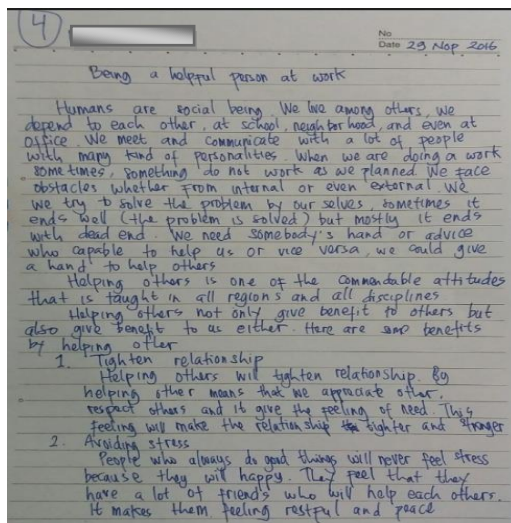 4
No
Date 29 Nop 2016
Being a helpful person at work
Humans are social being We live among others, we
depend to each other, at school, neighborhood, and even at
office. We meet and communicate with a lot of people
with many kind of personalities. When we are doing a work
sometimes, something do not work as we planned. We face
obstacles whether from internal or even external. We
we try to solve the problem by our selves, sometimes it
ends well (the problem is solved) but mostly it ends
with dead end. We need somebody's hand or advice
who capable to help us or vice versa, we could give
a hand to help others
Helping others is one of the commendable attitudes
that is taught in all regions and all disciplines
Helping others not only give benefit to others but
also give benefit to us either. Here are some benefits
by helping other
1. Tighten relationship
Helping others will tighten relationship. By
helping other means that we appreciate other,
respect others and it give the feeling of need. This
feeling will make the relationship tighter and stronger
2. Avoiding stress
People who always do good things will never feel stress
because they will happy. They feel that they
have a lot of friends who will help each others.
It makes them feeling restful and peace